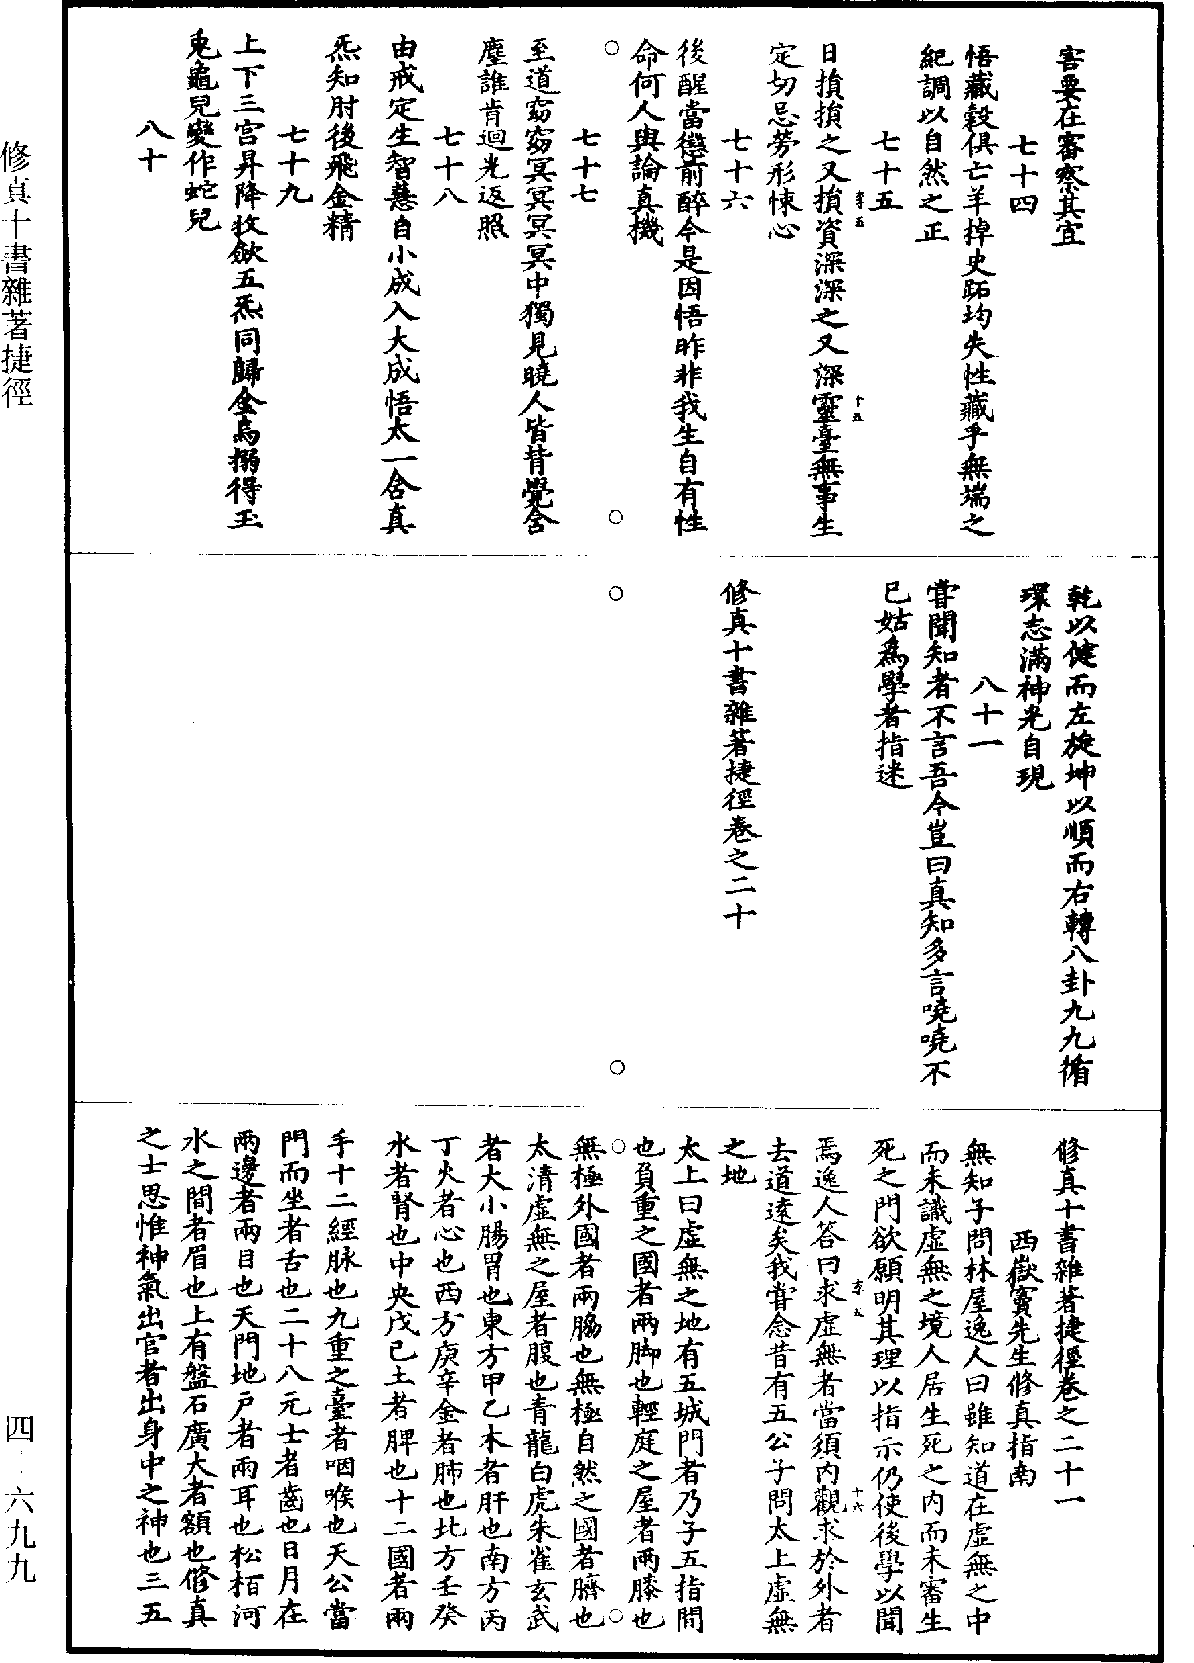 害要在審察其宜
七十四
悟藏穀俱亡羊掉史跖均失性藏乎無端之
紀調以自然之正
七十五
日損損之又損資深深之又深靈臺無事生
定切忌勞形悚心
七十六
後醒當懲前醉今是因悟昨非我生自有性
命何人與論真機
七十七
至道窈窈冥冥冥冥中獨見曉人皆背覺合
塵誰肯迴光返照
七十八
由戒定生智慧自小成入大成悟太一含真
炁知肘後飛金精
七十九
上下三宮昇降收歛五炁同歸金烏搦得玉
兎龜兒變作蛇兒
八十
乾以健而左旋坤以順而右轉八卦九九循
環志滿神光自現
八十一
甞聞知者不言吾今豈曰真知多言嘵嘵不
已姑爲學者指迷
修真十書雜著捷徑卷之二十
修真十書雜著捷徑卷之二十一
西嶽竇先生修真指南
無知子問林屋逸人曰雖知道在虛無之中
而未識虛無之境人居生死之內而未審生
死之門欲願明其理以指示仍使後學以聞
焉逸人答曰求虛無者當須內觀求於外者
去道遠矣我甞念昔有五公子問太上虛無
之地
太上曰虛無之地有五城門者乃子五指間
也負重之國者兩脚也輕庭之屋者兩膝也
無極外國者兩脇也無極自然之國者臍也
太清虛無之屋者腹也青龍白虎朱雀玄武
者大小腸胃也東方甲乙木者肝也南方丙
丁火者心也西方庚辛金者肺也北方壬癸
水者腎也中央戊己土者脾也十二國者兩
手十二經脉也九重之臺者咽喉也天公當
門而坐者舌也二十八元士者齒也日月在
兩邊者兩目也天門地户者兩耳也松栢河
水之間者眉也上有盤石廣大者額也修真
之士思惟神氣出官者出身中之神也三五
修真十書雜著捷徑
四·六九九